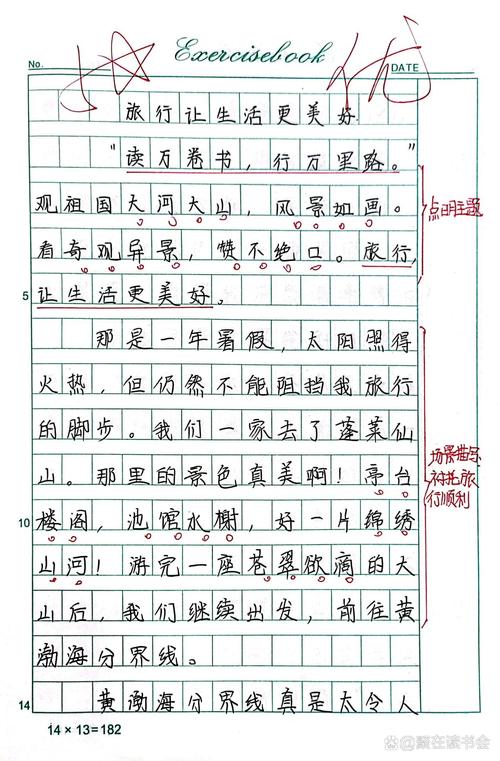 Exercisebook
No.
DATE
优
旅行让生活更美好
“读万卷书，行万里路。”
观祖国大河大山，风景如画。
点明主题
看奇观异景，赞不绝口。旅行，
5
让生活更美好。
那是一年暑假，太阳照得
火热，但仍然不能阻挡我旅行
的脚步。我们一家去了蓬莱仙
山。那里的景色真美啊！亭台
场景描写
衬托旅
行顺利
10
楼阁，池馆水榭，好一片绵绣
山河！游完一座苍翠欲滴的大
山后，我们继续出发，前往黄
渤海分界线。
14
黄渤海分界线真是太令人
14×13=182
@蒙在读书会